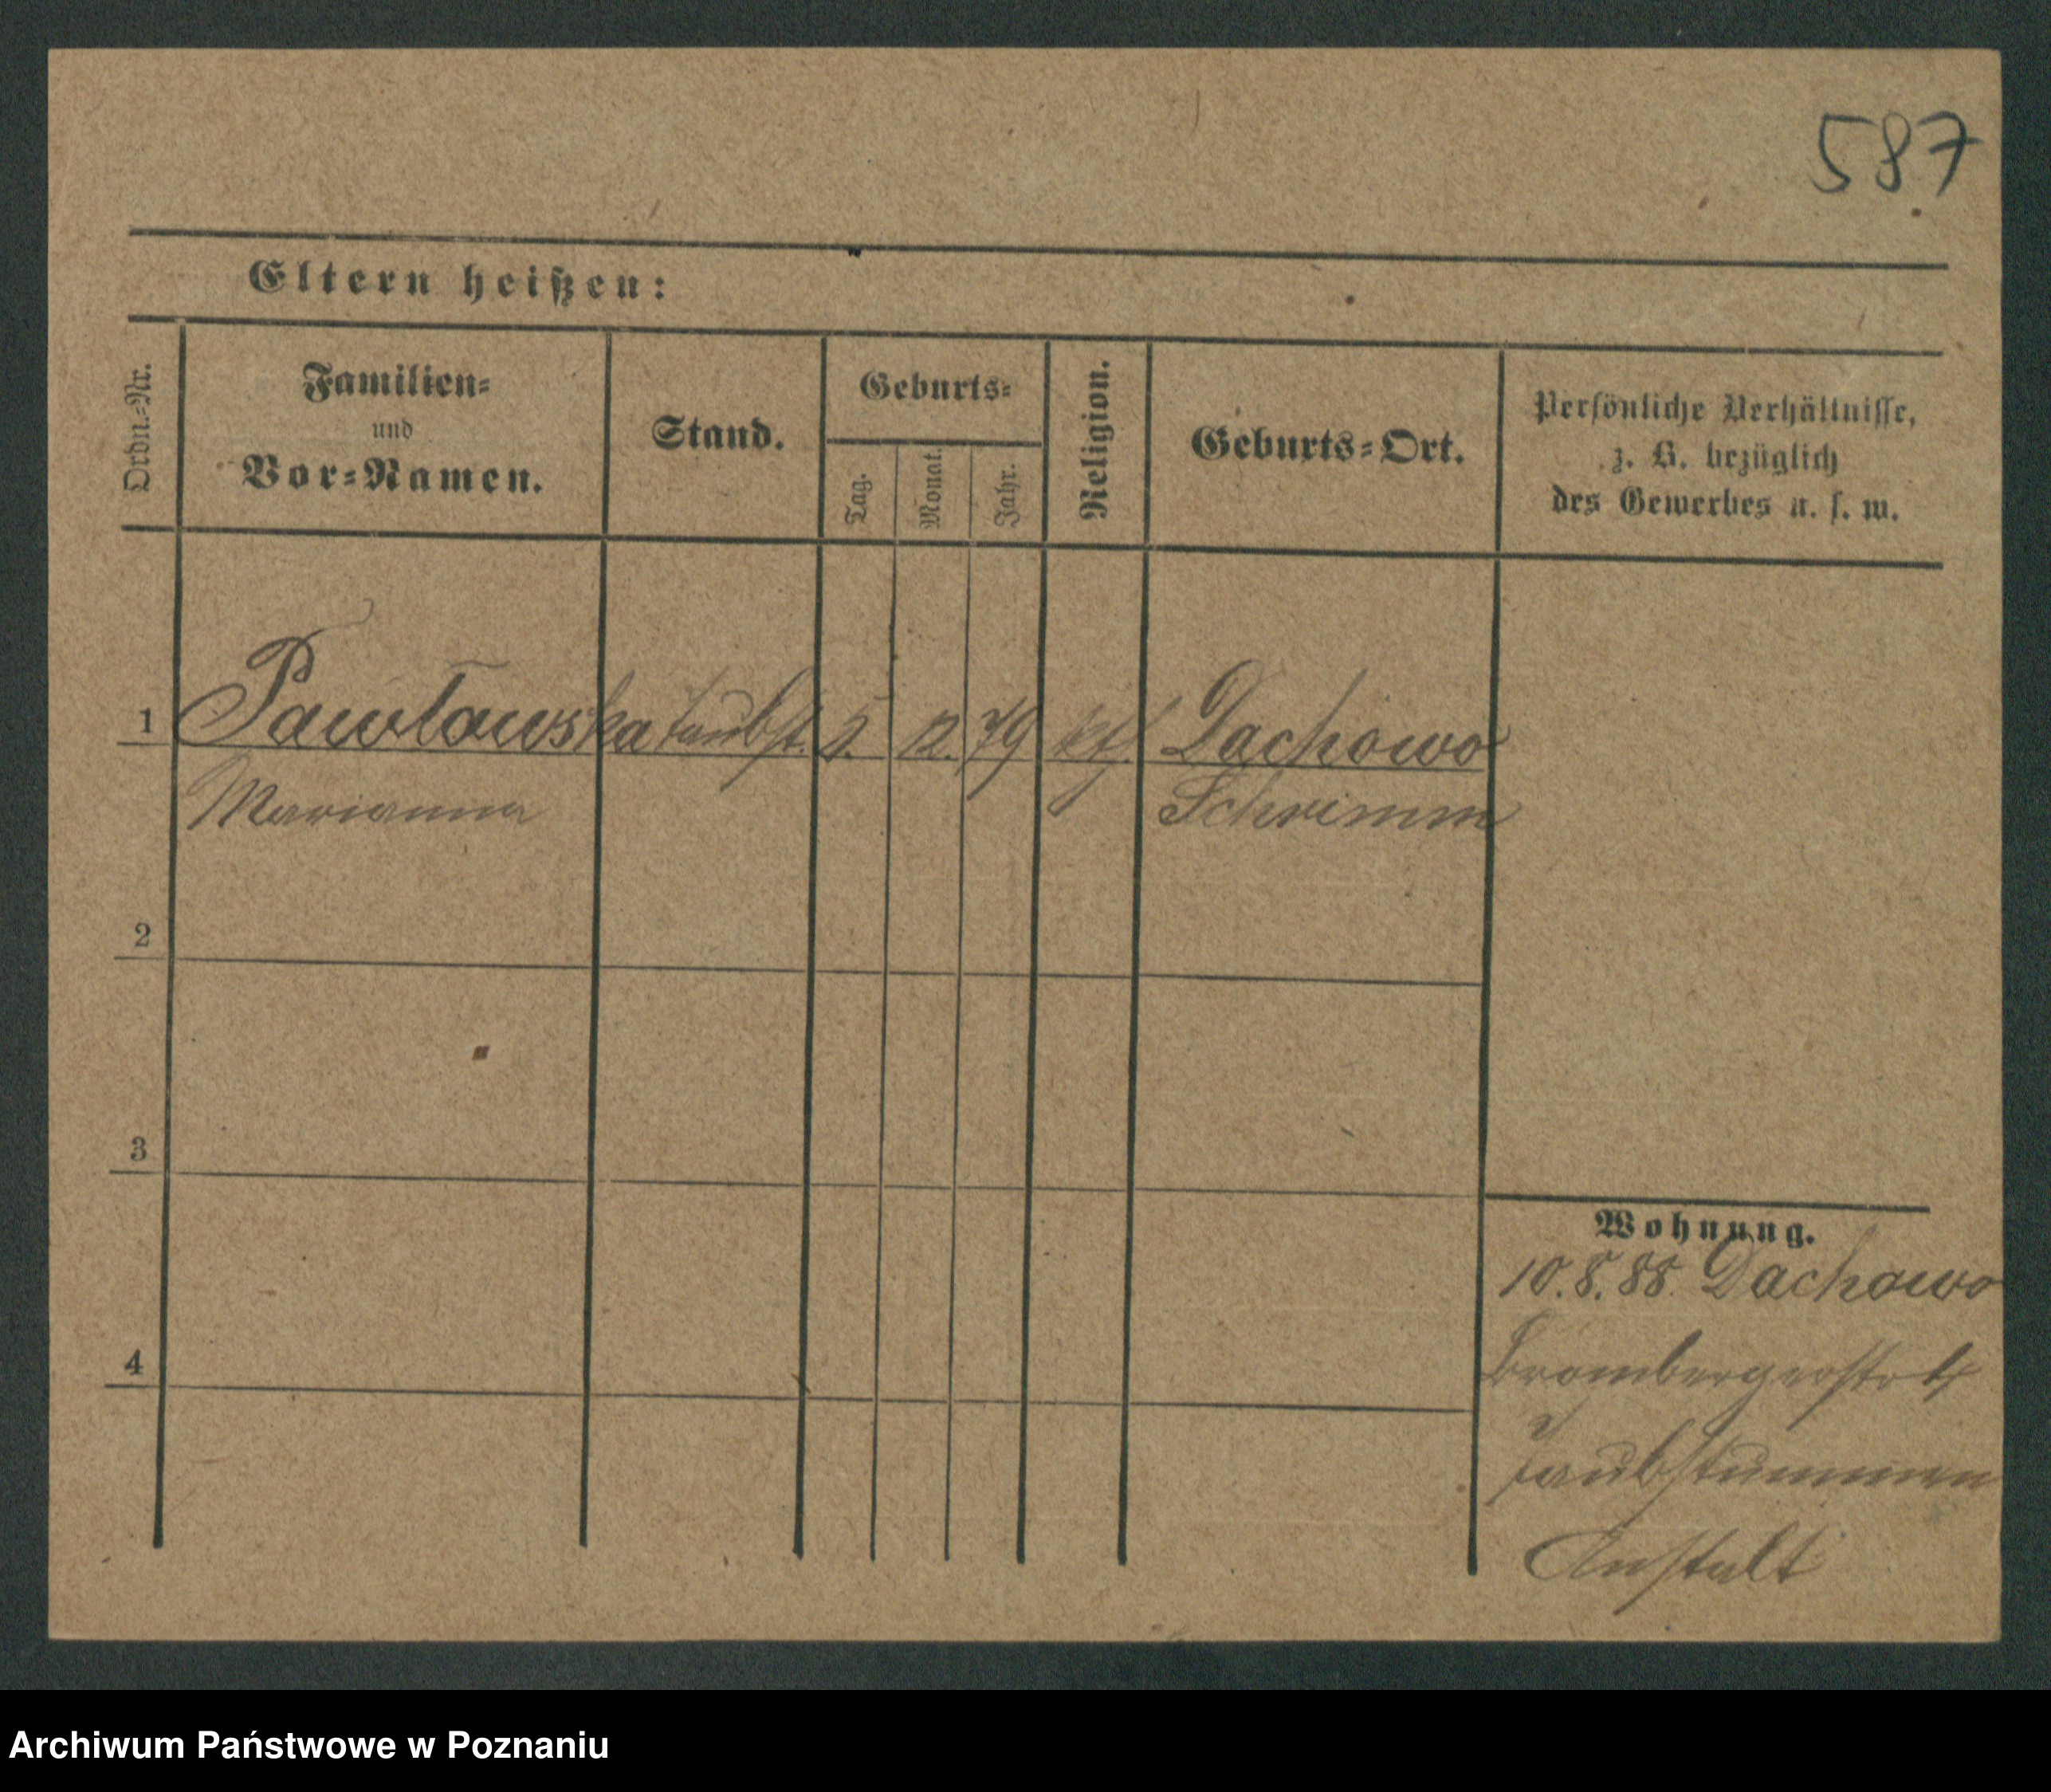 587
Eltern heißen:
Ordn.=Nr.
Familien=
und
Vor=Namen.
Stand.
Geburts=
Tag.
Monat.
Jahr.
Religion.
Geburts=Ort.
Persönliche Verhältnisse,
z. B. bezüglich
des Gewerbes u. s. w.
1 Pawlowska taubst. 5. 12. 79 kth. Dachowo
Marianna Schrimm
2
3
4
Wohnung.
10.8.88. Dachowo
Brombergerstr
Taubstummen
Anstalt
Archiwum Państwowe w Poznaniu